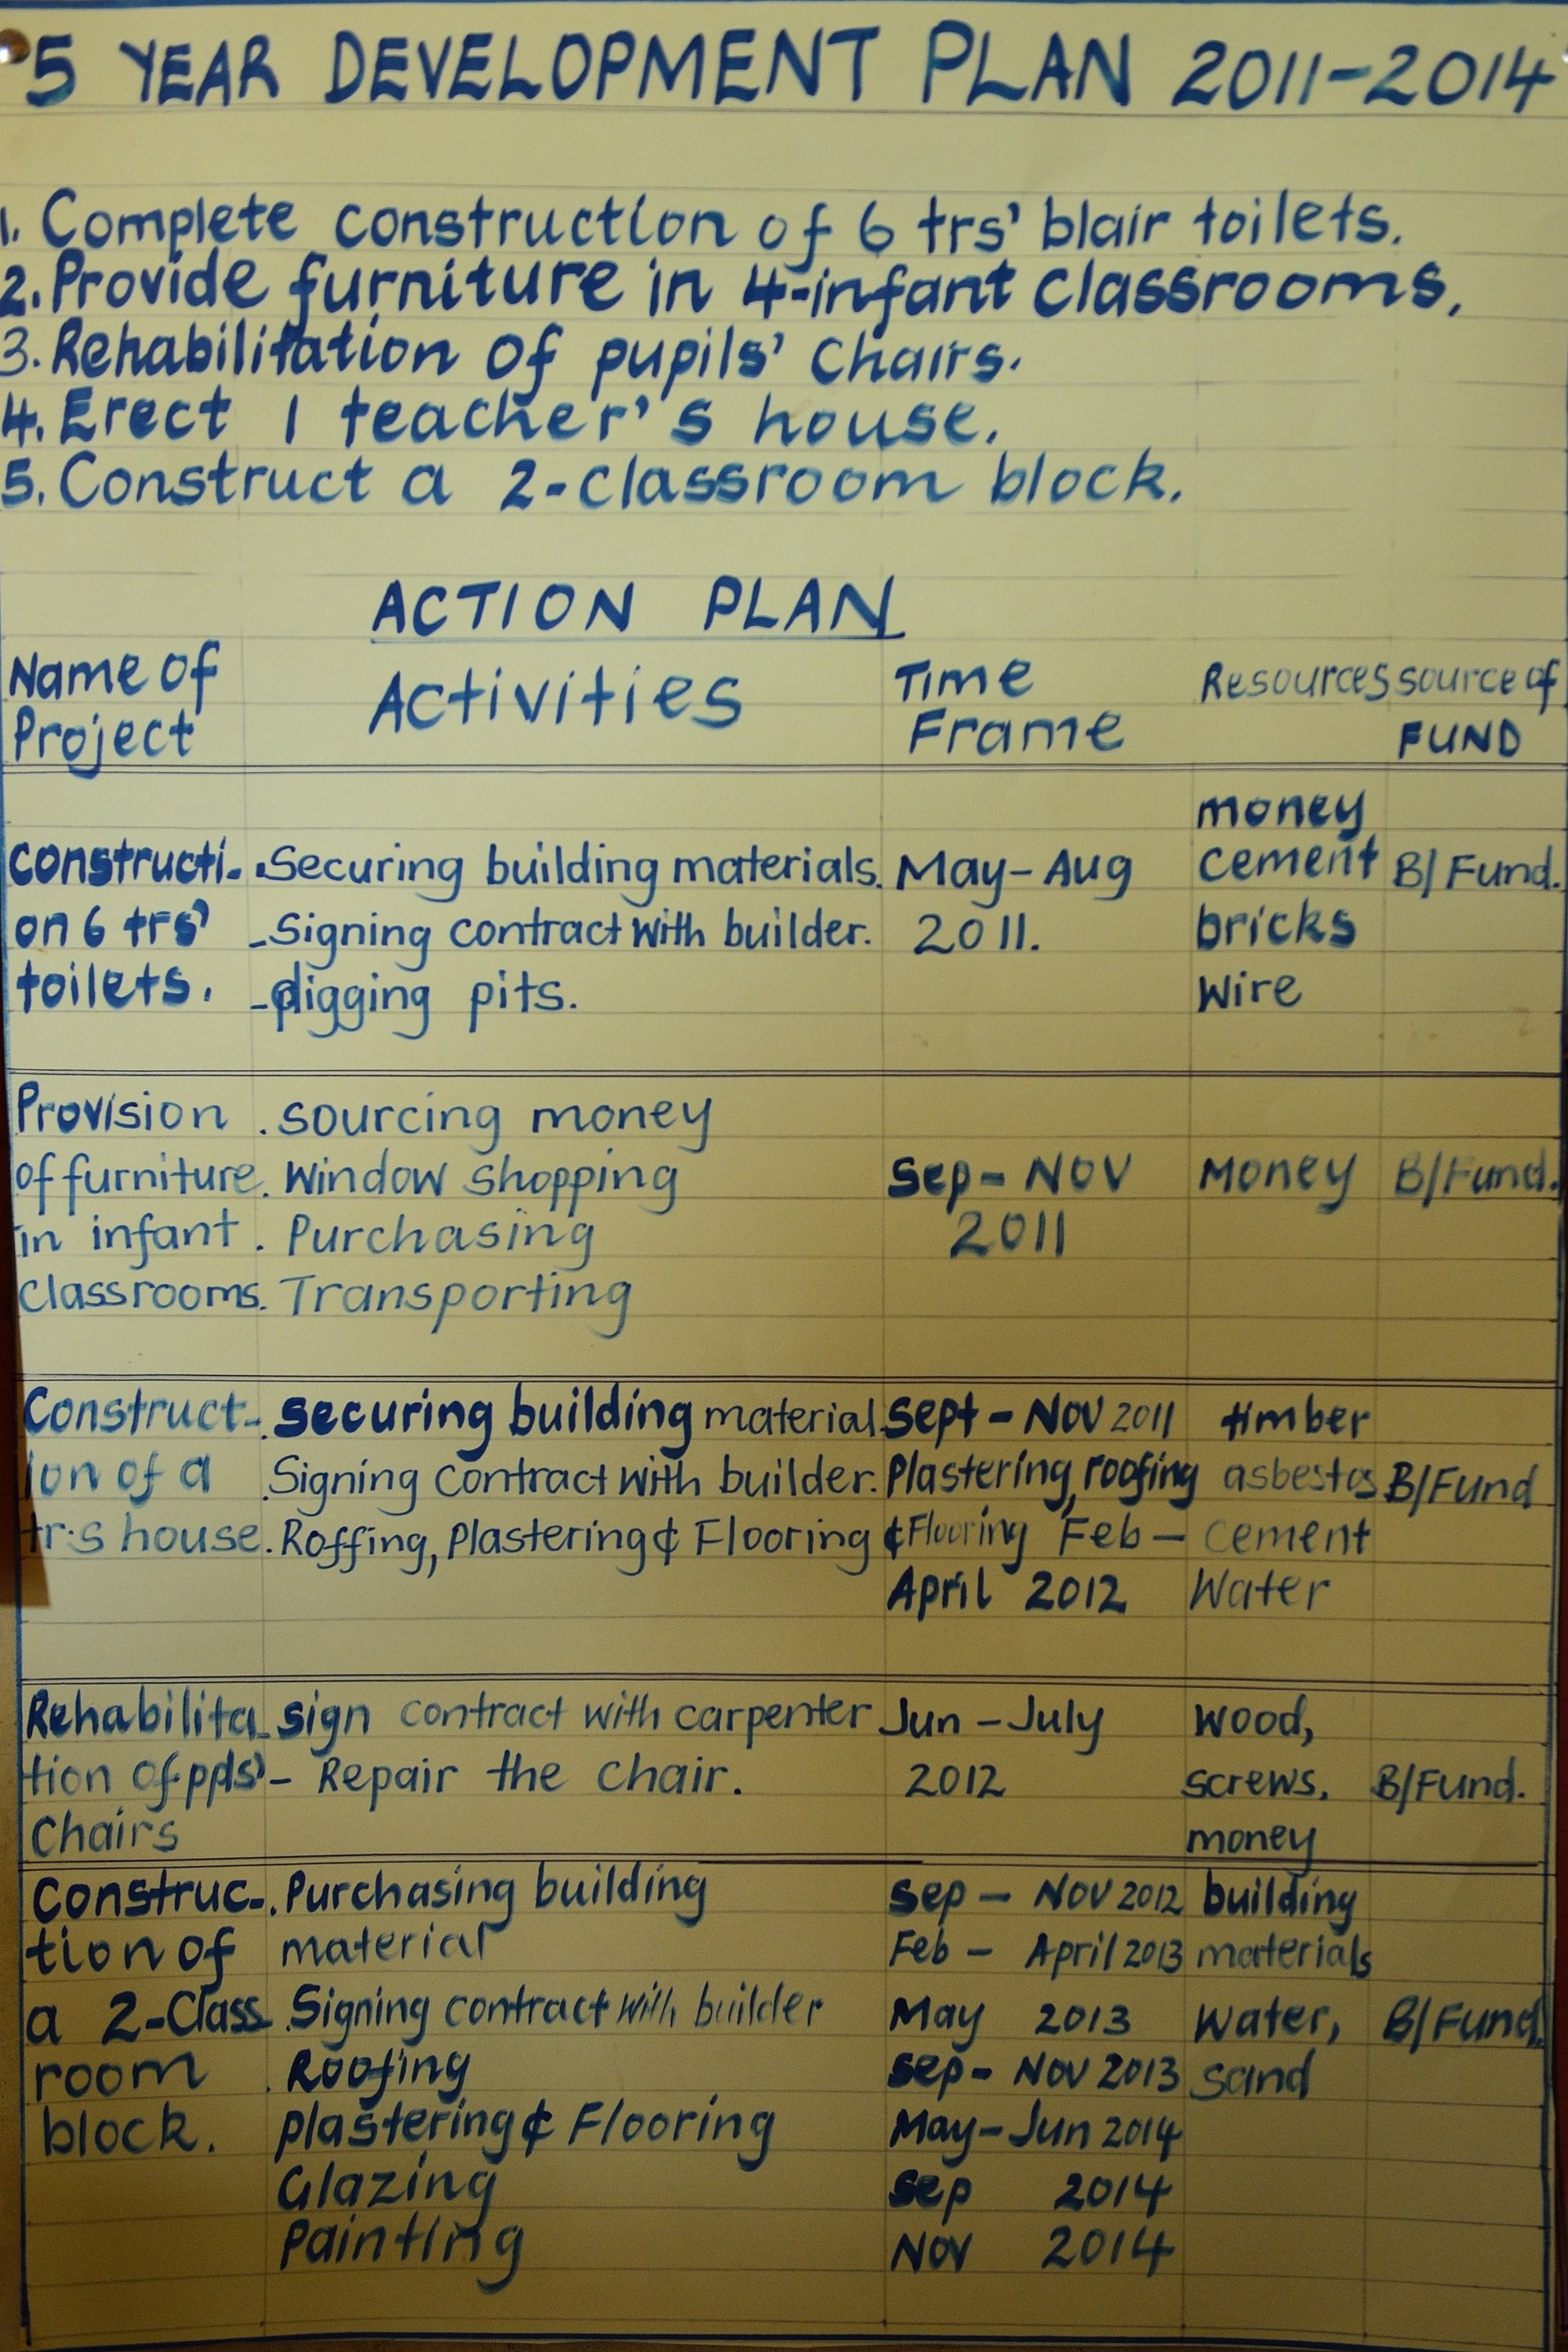 5 YEAR DEVELOPMENT PLAN 2011-2014
1. Complete construction of 6 trs' blair toilets.
2. Provide furniture in 4-infant classrooms.
3. Rehabilitation of pupils' chairs.
4. Erect 1 teacher's house.
5. Construct a 2-classroom block.
ACTION PLAN
Name of Activities Time Resources source of
Project Frame FUND
money
constructi- .Securing building materials. May-Aug cement B/Fund.
on 6 trs' -Signing contract with builder. 2011. bricks
toilets. -digging pits. wire
Provision . sourcing money
of furniture. Window shopping Sep- Nov Money B/Fund.
in infant . Purchasing 2011
classrooms. Transporting
Construct-. securing building material Sept - Nov 2011 timber
ion of a .Signing contract with builder. Plastering, roofing asbestos B/Fund
tr's house. Roffing, Plastering ¢ Flooring ¢ Flooring Feb - cement
April 2012 Water
Rehabilita- sign contract with carpenter Jun - July wood,
tion of ppls' - Repair the chair. 2012 screws, B/Fund.
Chairs money
Construc-. Purchasing building Sep - Nov 2012 building
tion of material Feb - April 2013 materials
a 2-Class- .Signing contract with builder May 2013 water, B/Fund.
room . Roofing Sep- Nov 2013 sand
block. plastering ¢ Flooring May-Jun 2014
Glazing Sep 2014
Painting Nov 2014